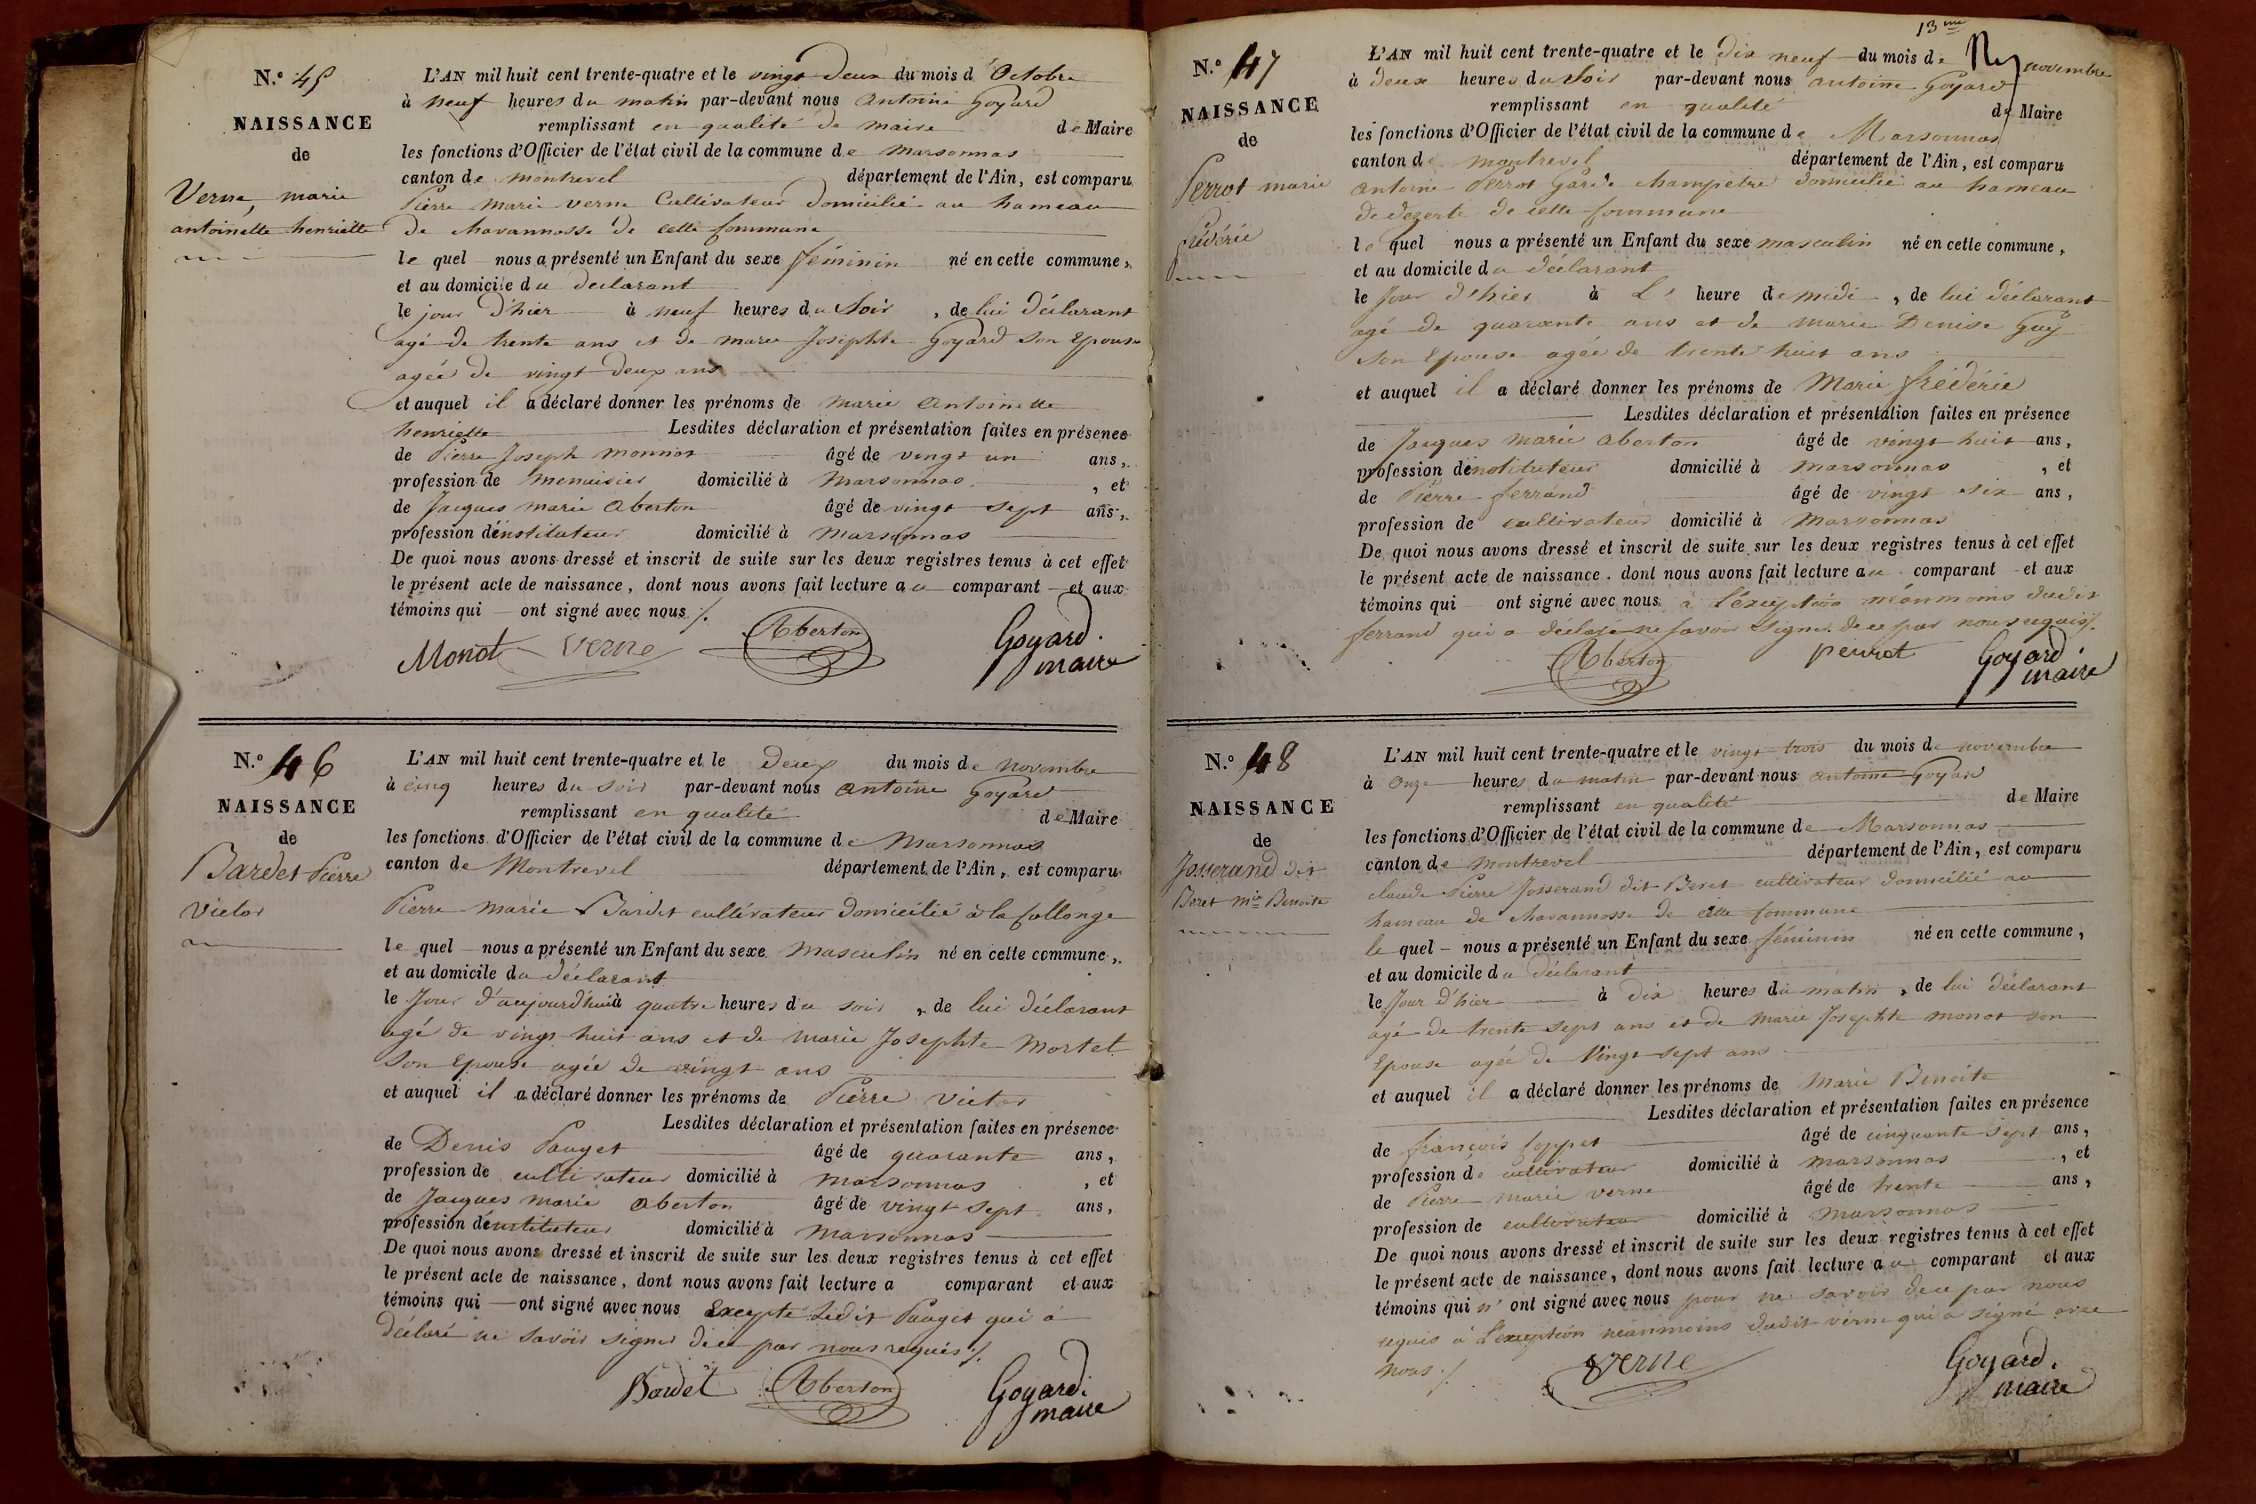 N.º 45
NAISSANCE
de
Verne, marie
antoinette henriette
L'AN mil huit cent trente-quatre et le vingt deux du mois d'Octobre
à neuf heures du matin par-devant nous antoine Goyard
remplissant en qualité de maire de Maire
les fonctions d'Officier de l'état civil de la commune de Marsonnas
canton de Montrevel département de l'Ain, est comparu
Pierre Marie verne Cultivateur domicilié au hameau
de chavannosse de cette Commune
le quel nous a présenté un Enfant du sexe féminin né en cette commune,
et au domicile du declarant
le jour d'hier à neuf heures du Soir, de lui déclarant
agé de trente ans et de marie Josephte Goyard son Epouse
agée de vingt deux ans
et auquel il a déclaré donner les prénoms de marie antoinette
henriette Lesdites déclaration et présentation faites en présence
de Pierre Joseph monnot âgé de vingt un ans,
profession de menuisier domicilié à Marsonnas, et
de Jacques marie aberton âgé de vingt sept ans,
profession d'instituteur domicilié à Marsonnas
De quoi nous avons dressé et inscrit de suite sur les deux registres tenus à cet effet
le présent acte de naissance, dont nous avons fait lecture au comparant et aux
témoins qui ont signé avec nous ./.
Monot Verne Aberton Goyard.
maire
N.º 46
NAISSANCE
de
Bardet Pierre
Victor
L'AN mil huit cent trente-quatre et le deux du mois de novembre
à cinq heures du soir par-devant nous antoine Goyard
remplissant en qualité de Maire
les fonctions d'Officier de l'état civil de la commune de Marsonnas
canton de Montrevel département de l'Ain, est comparu
Pierre Marie Bardet cultivateur domicilié à la follonge
le quel nous a présenté un Enfant du sexe Masculin né en cette commune,
et au domicile du déclarant
le Jour d'aujourd'hui à quatre heures du soir, de lui déclarant
agé de vingt huit ans et de marie Josephte Mortel
Son Epouse agée de vingt ans
et auquel il a déclaré donner les prénoms de Pierre victor
Lesdites déclaration et présentation faites en présence
de Denis Pauget âgé de quarante ans,
profession de cultivateur domicilié à Marsonnas, et
de Jacques marie aberton âgé de vingt sept ans,
profession d'instituteur domicilié à Marsonnas
De quoi nous avons dressé et inscrit de suite sur les deux registres tenus à cet effet
le présent acte de naissance, dont nous avons fait lecture a comparant et aux
témoins qui ont signé avec nous Excepté Ledit Pauget qui à
déclaré ne savoir signer de ce par nous requis ./.
Bardet Aberton Goyard.
maire
13me
N.º 47
NAISSANCE
de
Perrot marie
frédéric
L'AN mil huit cent trente-quatre et le dix neuf du mois de novembre
à deux heures du Soir par-devant nous antoine Goyard
remplissant en qualité de Maire
les fonctions d'Officier de l'état civil de la commune de Marsonnas
canton de Montrevel département de l'Ain, est comparu
antoine Perrot Garde champetre domicilié au hameau
de dezerte de cette Commune
le quel nous a présenté un Enfant du sexe masculin né en cette commune,
et au domicile du déclarant
le Jour d'hier à L' heure de midi, de lui déclarant
agé de quarante ans et de marie Denise Guy
son Epouse agée de trente huit ans
et auquel il a déclaré donner les prénoms de Marie frédéric
Lesdites déclaration et présentation faites en présence
de Jacques marie aberton âgé de vingt huit ans,
profession d'instituteur domicilié à Marsonnas, et
de Pierre ferrand âgé de vingt six ans,
profession de cultivateur domicilié à Marsonnas
De quoi nous avons dressé et inscrit de suite sur les deux registres tenus à cet effet
le présent acte de naissance. dont nous avons fait lecture au comparant et aux
témoins qui ont signé avec nous a l'exception néanmoins dudit
ferrand qui a déclaré ne savoir signer de ce par nous requis ./.
Aberton perrot Goyard
maire
N.º 48
NAISSANCE
de
Josserand dit
Beret mie Benoite
L'AN mil huit cent trente-quatre et le vingt trois du mois de novembre
à Onze heures du matin par-devant nous antoine Goyard
remplissant en qualité de Maire
les fonctions d'Officier de l'état civil de la commune de Marsonnas
canton de Montrevel département de l'Ain, est comparu
claude Pierre Josserand dit Beret cultivateur domicilié au
hameau de chavannosse de cette Commune
le quel nous a présenté un Enfant du sexe féminin né en cette commune,
et au domicile du déclarant
le Jour d'hier à dix heures du matin, de lui déclarant
agé de trente sept ans et de Marie Josephte monot son
Epouse agée de Vingt sept ans
et auquel il a déclaré donner les prénoms de Marie Benoite
Lesdites déclaration et présentation faites en présence
de françois foppet âgé de cinquante sept ans,
profession de cultivateur domicilié à Marsonnas, et
de Pierre marie verne âgé de trente ans,
profession de cultivateur domicilié à Marsonnas
De quoi nous avons dressé et inscrit de suite sur les deux registres tenus à cet effet
le présent acte de naissance, dont nous avons fait lecture au comparant et aux
témoins qui n'ont signé avec nous pour ne savoir de ce par nous
requis à l'exception néanmoins dudit verne qui a signé avec
nous ./.
Verne Goyard.
maire